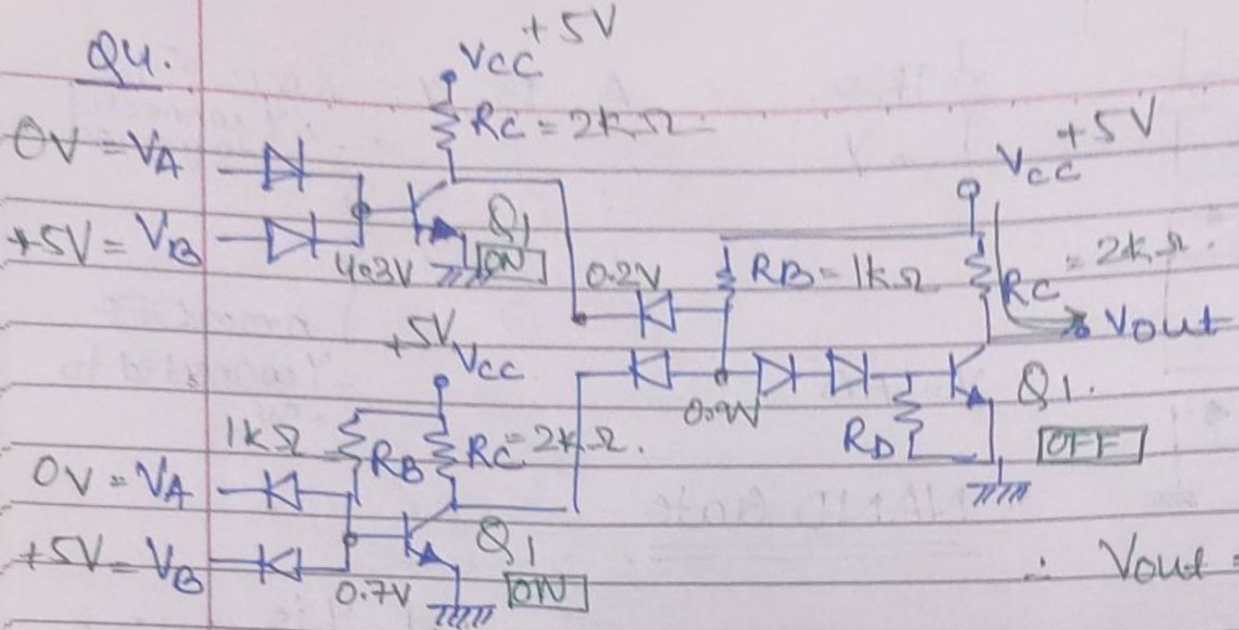 Q4.
VCC +5V
RC = 2kΩ
0V = VA
+5V = VB
4.3V
Q1
ON
VCC +5V
0.2V
RB = 1kΩ
RC = 2kΩ.
Vout
+5V VCC
0.9V
Q1.
RD
OFF
1kΩ
RB
RC = 2kΩ.
0V = VA
+5V = VB
0.7V
Q1
ON
∴ Vout =